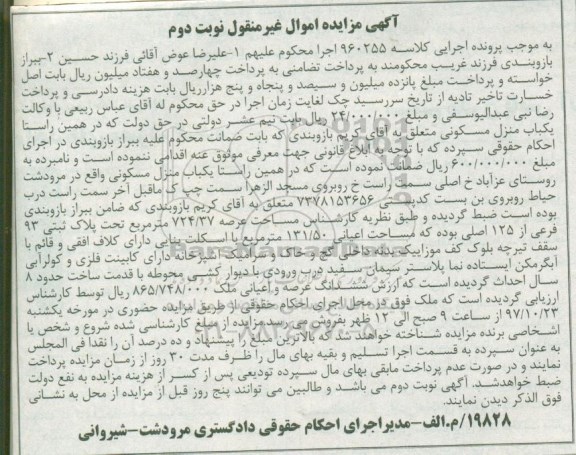 آگهی مزایده اموال غیرمنقول نوبت دوم
به موجب پرونده اجرایی کلاسه ۹۶۰۲۵۵ اجرا محکوم علیهم ۱-علیرضا عوض آقائی فرزند حسین ۲-ببراز
بازوبندی فرزند غریب محکومند به پرداخت تضامنی به پرداخت چهارصد و هفتاد میلیون ریال بابت اصل
خواسته و پرداخت مبلغ پانزده میلیون و سیصد و پنجاه و پنج هزارریال بابت هزینه دادرسی و پرداخت
خسارت تاخیر تادیه از تاریخ سررسید چک لغایت زمان اجرا در حق محکوم له آقای عباس ربیعی با وکالت
رضا نبی عبدالیوسفی و مبلغ ۲۴/۰۰۰/۰۰۰ ریال بابت نیم عشر دولتی در حق دولت که در همین راستا
یکباب منزل مسکونی متعلق به آقای کریم بازوبندی که بابت ضمانت محکوم علیه ببراز بازوبندی در اجرای
احکام حقوقی سپرده که با توجه به ابلاغ قانونی جهت معرفی موثوق عنه اقدامی ننموده است و نامبرده به
مبلغ ۶۰۰/۰۰۰/۰۰۰ ریال ضمانت نموده است که در همین راستا یکباب منزل مسکونی واقع در مرودشت
روستای عزآباد خ اصلی سمت راست خ روبروی مسجد الزهرا سمت چپ ک ماقبل آخر سمت راست درب
حیاط روبروی بن بست کدپستی ۷۳۷۸۱۵۳۶۵۶ متعلق به آقای کریم بازوبندی که ضامن ببراز بازوبندی
بوده است ضبط گردیده و طبق نظریه کارشناس مساحت عرصه ۷۲۴/۳۷ مترمربع تحت پلاک ثبتی ۹۳
فرعی از ۱۲۵ اصلی بوده که مساحت اعیانی ۱۳۱/۵۰ مترمربع با اسکلت بنایی دارای کلاف افقی و قائم با
سقف تیرچه بلوک کف موزاییک بدنه داخلی گچ و خاک و سرامیک آشپزخانه دارای کابینت فلزی و کولرآبی
آبگرمکن ایستاده نما پلاستر سیمان سفید درب ورودی با دیوار کشی محوطه با قدمت ساخت حدود ۸
سال احداث گردیده است که ارزش ششدانگ عرصه و اعیانی ملک ۸۶۵/۷۴۸/۰۰۰ ریال توسط کارشناس
ارزیابی گردیده است که ملک فوق در محل اجرای احکام حقوقی از طریق مزایده حضوری در مورخه یکشنبه
۹۷/۱۰/۲۳ از ساعت ۹ صبح الی ۱۲ ظهر بفروش می رسد مزایده از مبلغ کارشناسی شده شروع و شخص یا
اشخاصی برنده مزایده شناخته خواهند شد که بالاترین مبلغ را پیشنهاد و ده درصد آن را نقدا فی المجلس
به عنوان سپرده به قسمت اجرا تسلیم و بقیه بهای مال را ظرف مدت ۳۰ روز از زمان مزایده پرداخت
نمایند و در صورت عدم پرداخت مابقی بهای مال سپرده تودیعی پس از کسر از هزینه مزایده به نفع دولت
ضبط خواهدشد. آگهی نوبت دوم می باشد و طالبین می توانند پنج روز قبل از مزایده از محل به نشانی
فوق الذکر دیدن نمایند.
۱۹۸۲۸/م.الف-مدیراجرای احکام حقوقی دادگستری مرودشت-شیروانی